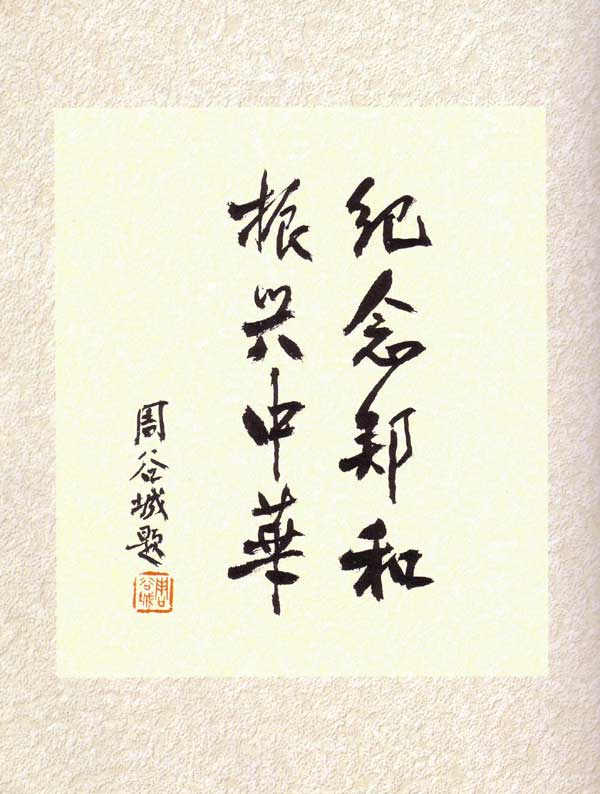 纪念郑和
振兴中華
周谷城题
周谷城